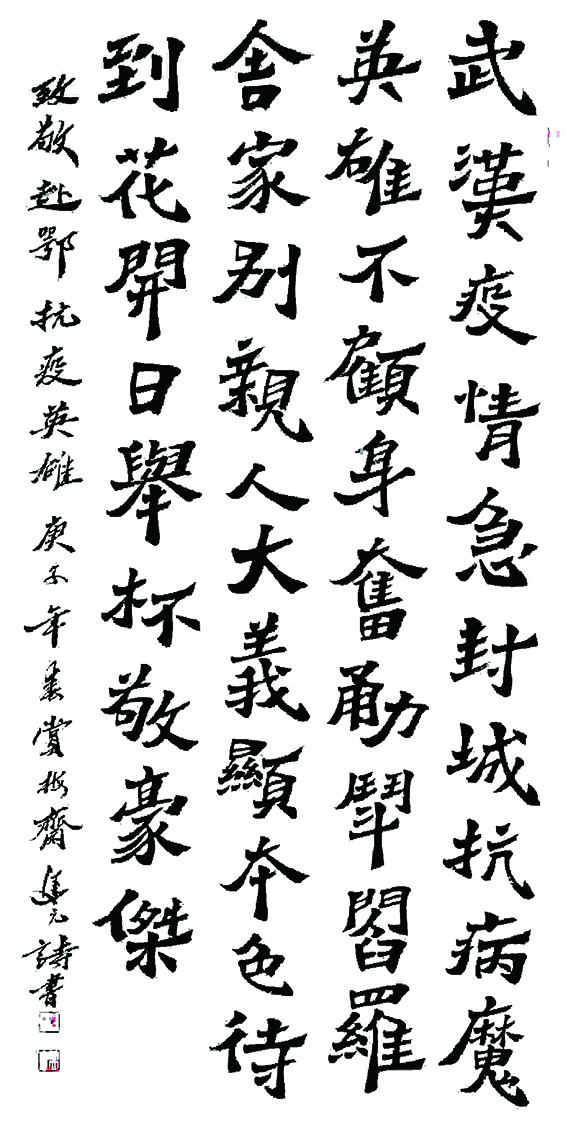 武漢疫情急封城抗病魔
英雄不顧身奮勈鬪閻羅
舍家别親人大義顯本色待
到花開日舉杯敬豪傑
致敬赴鄂抗疫英雄庚子年書賞梅齋建元詩書